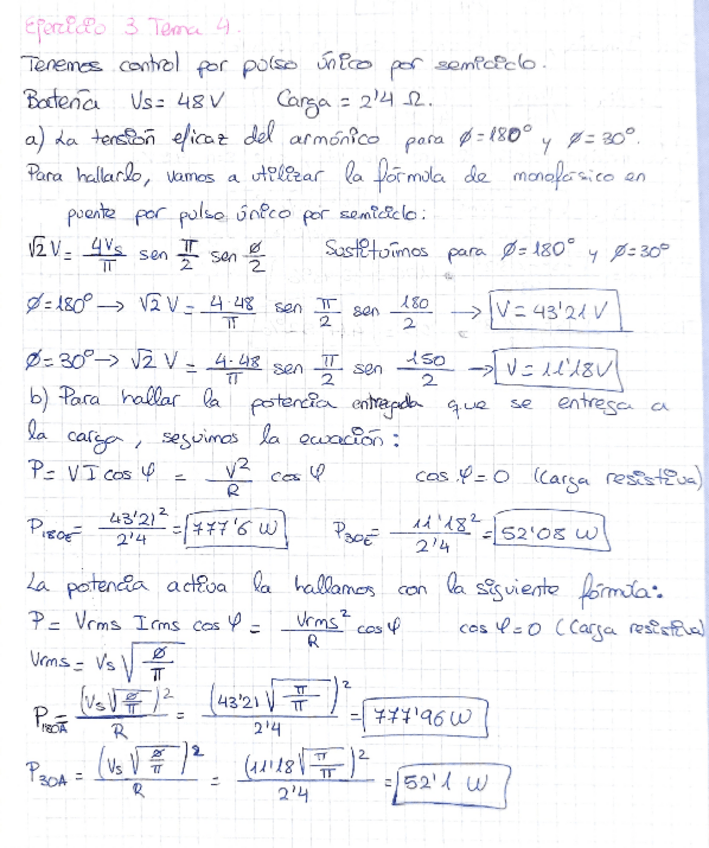 Ejercicio 3 Tema 4.
Tenemos control por pulso único por semiciclo.
Batería Vs = 48 V Carga = 2'4 Ω.
a) La tensión eficaz del armónico para ø = 180° y ø = 30°.
Para hallarlo, vamos a utilizar la fórmula de monofásico en
puente por pulso único por semiciclo:
√2 V = 4Vs/π sen π/2 sen ø/2 Sustituimos para ø = 180° y ø = 30°
ø = 180° → √2 V = 4·48/π sen π/2 sen 180/2 → V = 43'21 V
ø = 30° → √2 V = 4·48/π sen π/2 sen 150/2 → V = 11'18 V
b) Para hallar la potencia entregada que se entrega a
la carga, seguimos la ecuación:
P = V I cos φ = V²/R cos φ cos φ = 0 (Carga resistiva)
P180E = 43'21²/2'4 = 777'6 W P30E = 11'18²/2'4 = 52'08 W
La potencia activa la hallamos con la siguiente fórmula:
P = Vrms Irms cos φ = Vrms²/R cos φ cos φ = 0 (Carga resistiva)
Vrms = Vs √(ø/π)
P180A = (Vs √(ø/π))²/R = (43'21 √(π/π))²/2'4 = 777'96 W
P30A = (Vs √(ø/π))²/R = (11'18 √(π/π))²/2'4 = 52'1 W